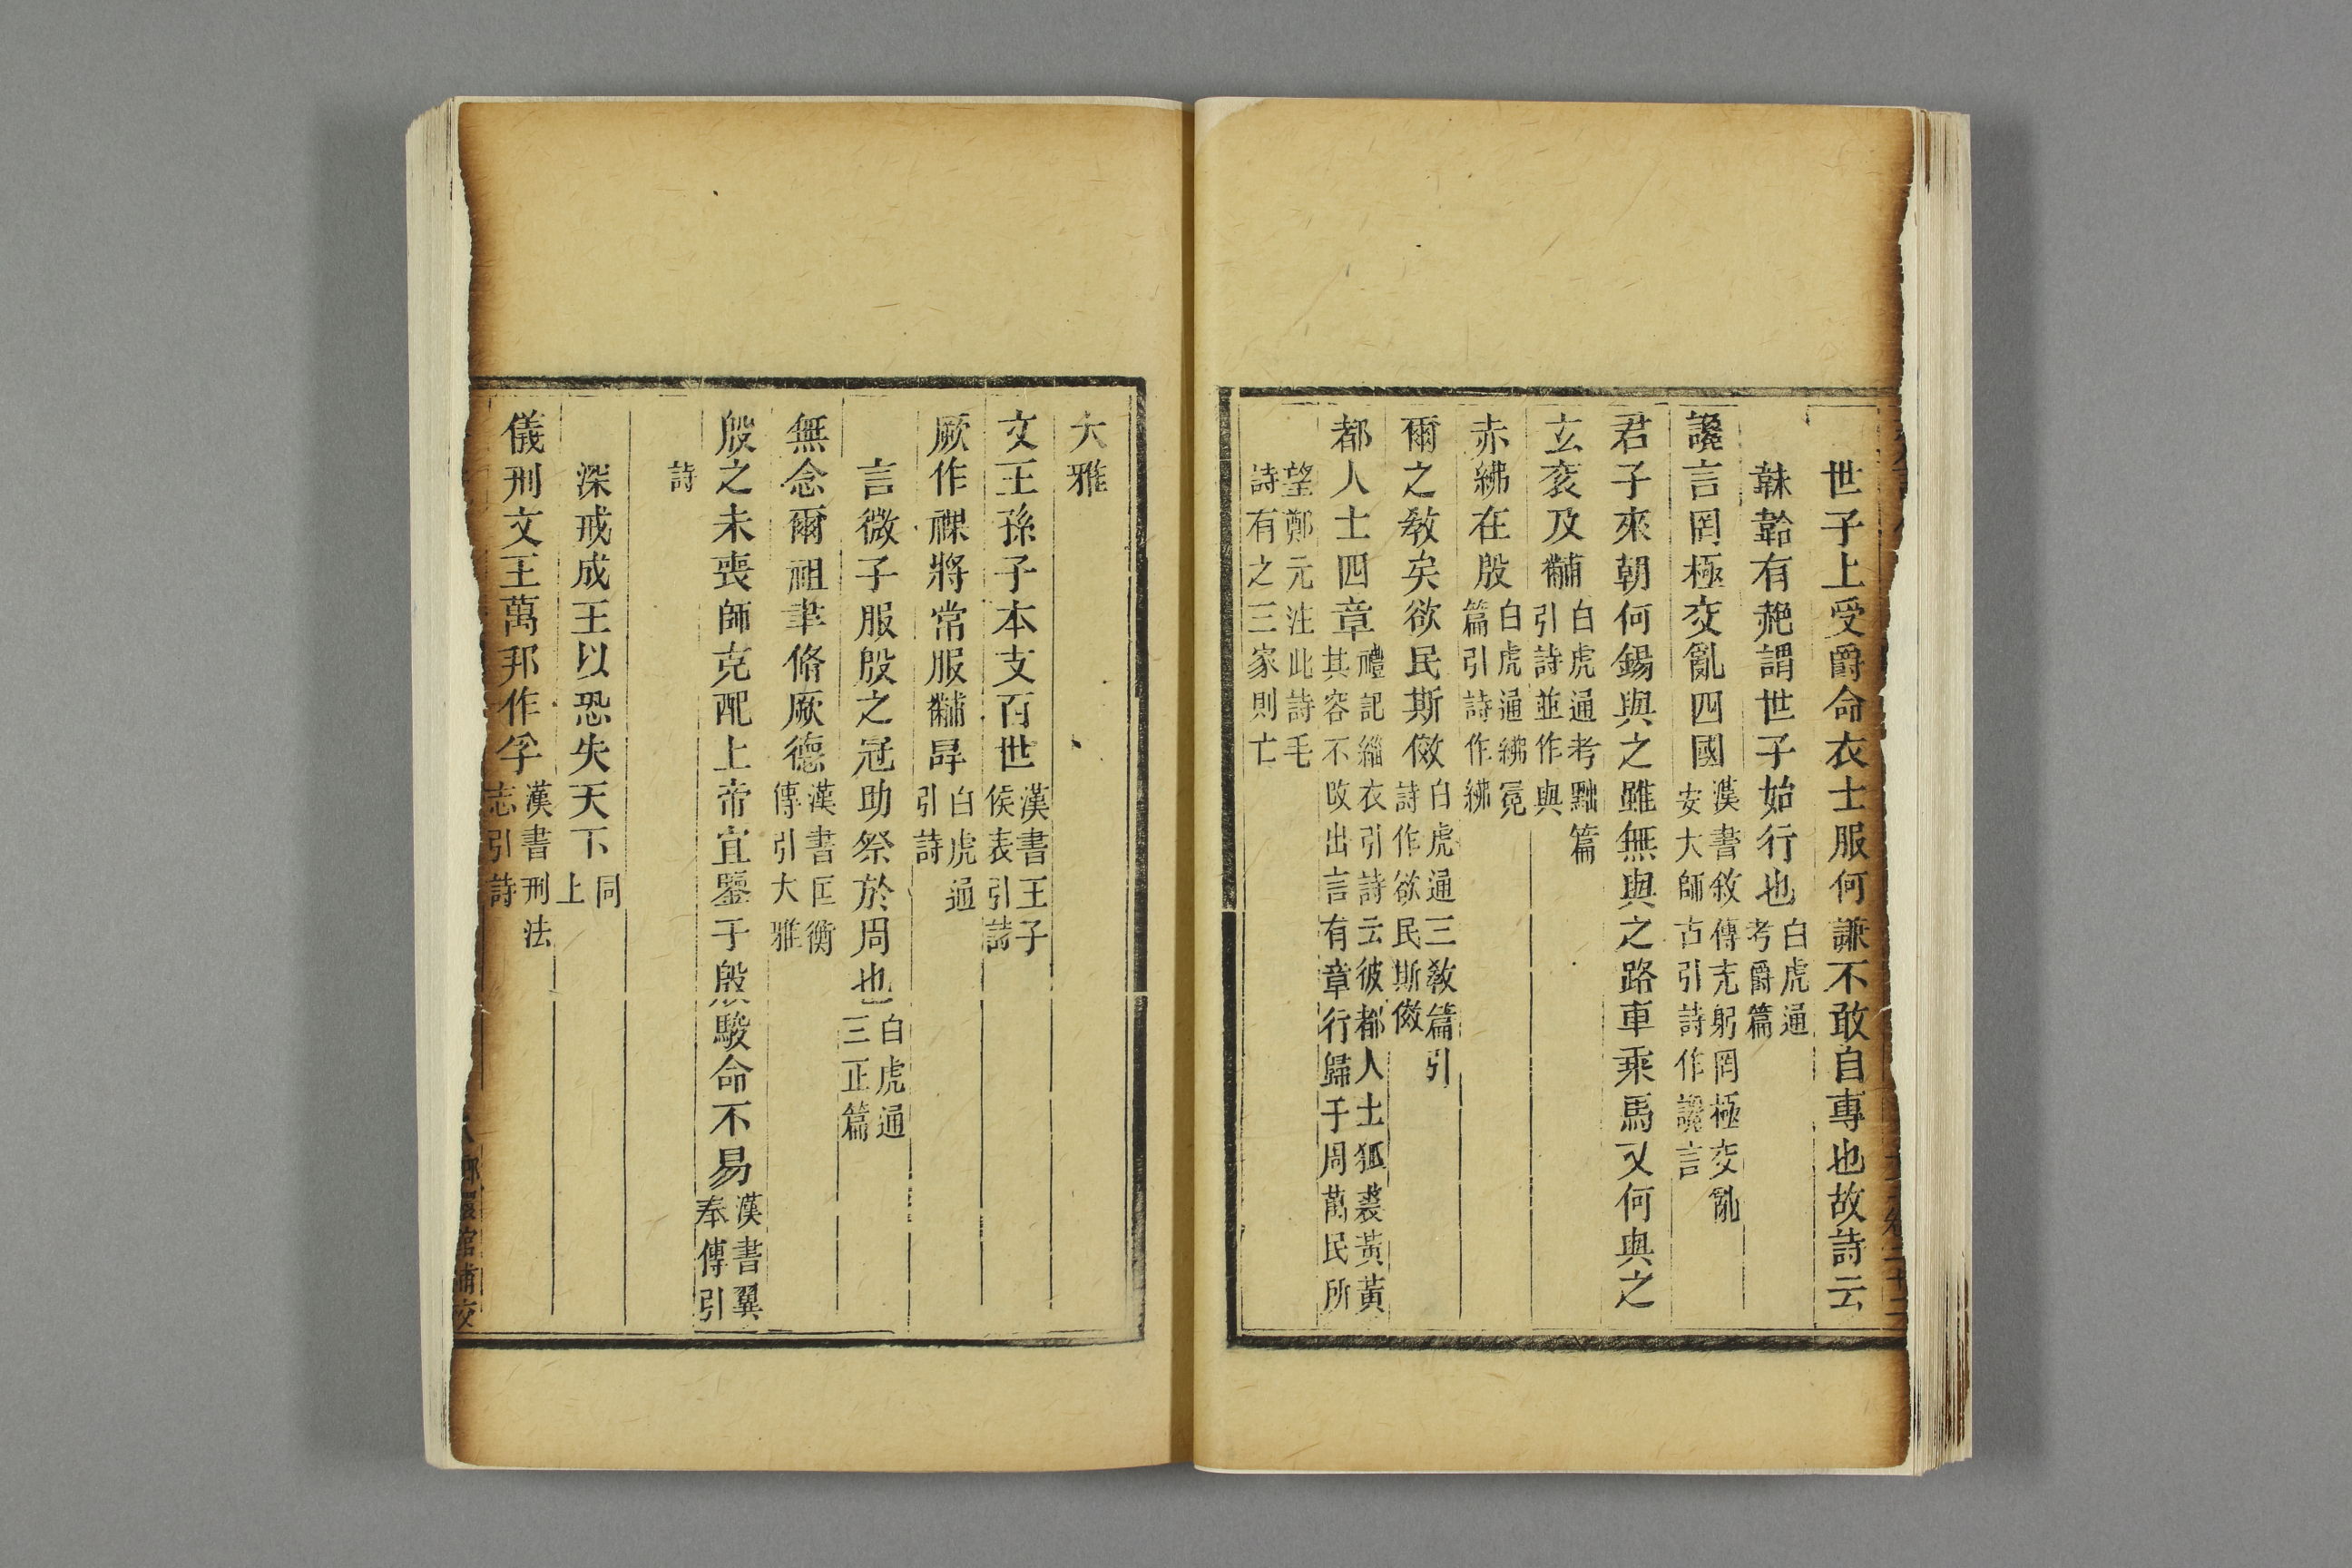 世子上受爵命衣士服何謙不敢自專也故詩云
韎韐有赩謂世子始行也白虎通
考爵篇
讒言罔極交亂四國漢書敘傳充躬罔極交亂
安大師古引詩作讒言
君子來朝何錫與之雖無與之路車乘馬又何與之
玄袞及黼白虎通考黜篇
引詩並作與
赤紼在殷白虎通紼冕
篇引詩作紼
爾之敎矣欲民斯傚白虎通三敎篇引
詩作欲民斯傚
都人士四章禮記緇衣引詩云彼都人士狐裘黃黃
其容不改出言有章行歸于周萬民所
望鄭元注此詩毛
詩有之三家則亡
大雅
文王孫子本支百世漢書王子
侯表引詩
厥作祼將常服黼冔白虎通
引詩
言微子服殷之冠助祭於周也白虎通
三正篇
無念爾祖聿脩厥德漢書匡衡
傳引大雅
殷之未喪師克配上帝宜鑒于殷駿命不易漢書翼
奉傳引
詩
深戒成王以恐失天下同
上
儀刑文王萬邦作孚漢書刑法
志引詩